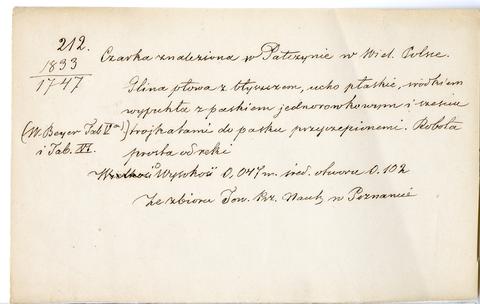 212.
1833
1747
Czarka znaleziona w Pałczynie w Wiel. Polsce.
Glina płowa z błyszczem, ucho płaskie, środkiem
wypukła z paskiem jednorowkowym i sześciu
(W. Beyer Tab V trójkątami do paska przyczepionemi. Robota
i Tab. VI. prosta od ręki
Wysokość 0,047 m. śred. otworu 0.102
Ze zbioru Tow. Prz. Nauk, w Poznaniu